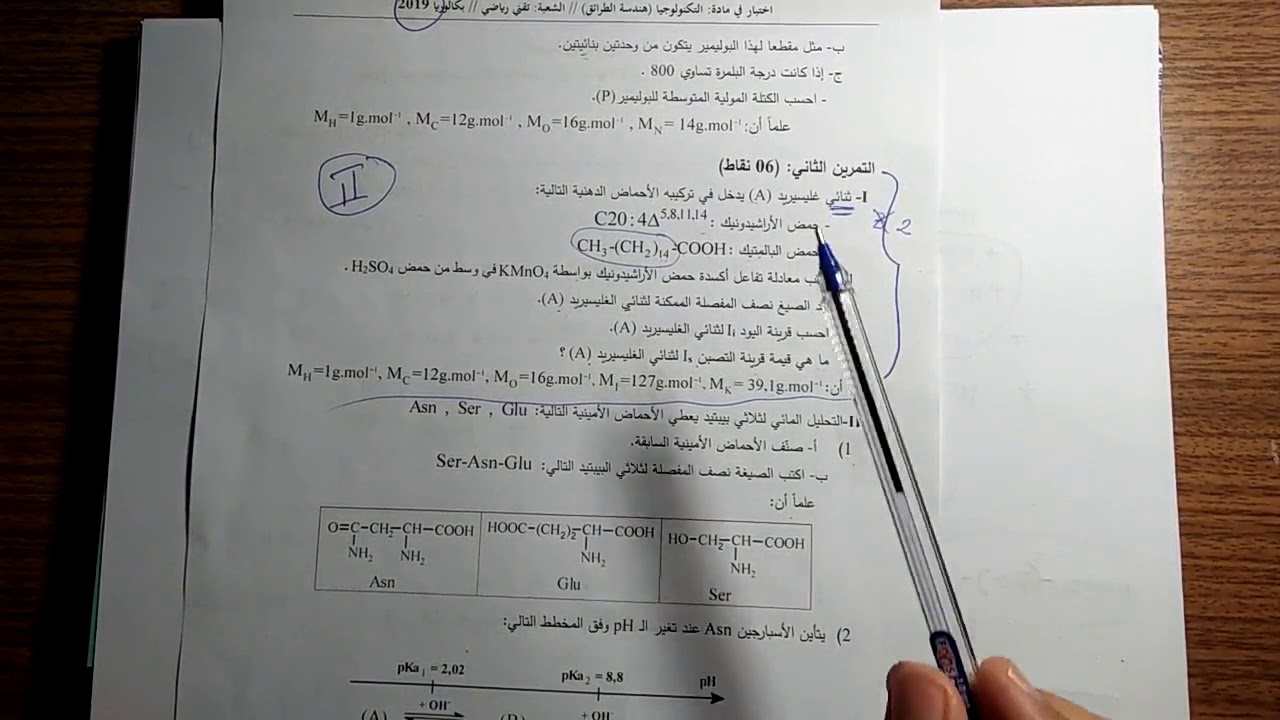 اختبار في مادة: التكنولوجيا (هندسة الطرائق) // الشعبة: تقني رياضي // بكالوريا 2019
ب- مثل مقطعا لهذا البوليمير يتكون من وحدتين بنائيتين.
ج- إذا كانت درجة البلمرة تساوي 800 .
- احسب الكتلة المولية المتوسطة للبوليمير (P).
علماً أن: M_H=1g.mol⁻¹ , M_C=12g.mol⁻¹ , M_O=16g.mol⁻¹ , M_N= 14g.mol⁻¹
التمرين الثاني: (06 نقاط)
II
I- ثنائي غليسيريد (A) يدخل في تركيبه الأحماض الدهنية التالية:
2
- حمض الأراشيدونيك : C20:4Δ⁵·⁸·¹¹·¹⁴
حمض البالمتيك : CH₃-(CH₂)₁₄-COOH
معادلة تفاعل أكسدة حمض الأراشيدونيك بواسطة KMnO₄ في وسط من حمض H₂SO₄ .
الصيغ نصف المفصلة الممكنة لثنائي الغليسيريد (A).
احسب قرينة اليود Iᵢ لثنائي الغليسيريد (A).
ما هي قيمة قرينة التصبن Iₛ لثنائي الغليسيريد (A) ؟
أن: M_H=1g.mol⁻¹, M_C=12g.mol⁻¹, M_O=16g.mol⁻¹, M_I=127g.mol⁻¹, M_K= 39,1g.mol⁻¹
II-التحليل المائي لثلاثي ببتيد يعطي الأحماض الأمينية التالية: Asn , Ser , Glu
1) أ- صنّف الأحماض الأمينية السابقة.
ب- اكتب الصيغة نصف المفصلة لثلاثي الببتيد التالي: Ser-Asn-Glu
علماً أن:
O=C-CH₂-CH-COOH HOOC-(CH₂)₂-CH-COOH HO-CH₂-CH-COOH
NH₂ NH₂ NH₂ NH₂
Asn Glu Ser
2) يتأين الأسبارجين Asn عند تغير الـ pH وفق المخطط التالي:
pKa₁ = 2,02 pKa₂ = 8,8 pH
(A) + OH⁻ (B) + OH⁻